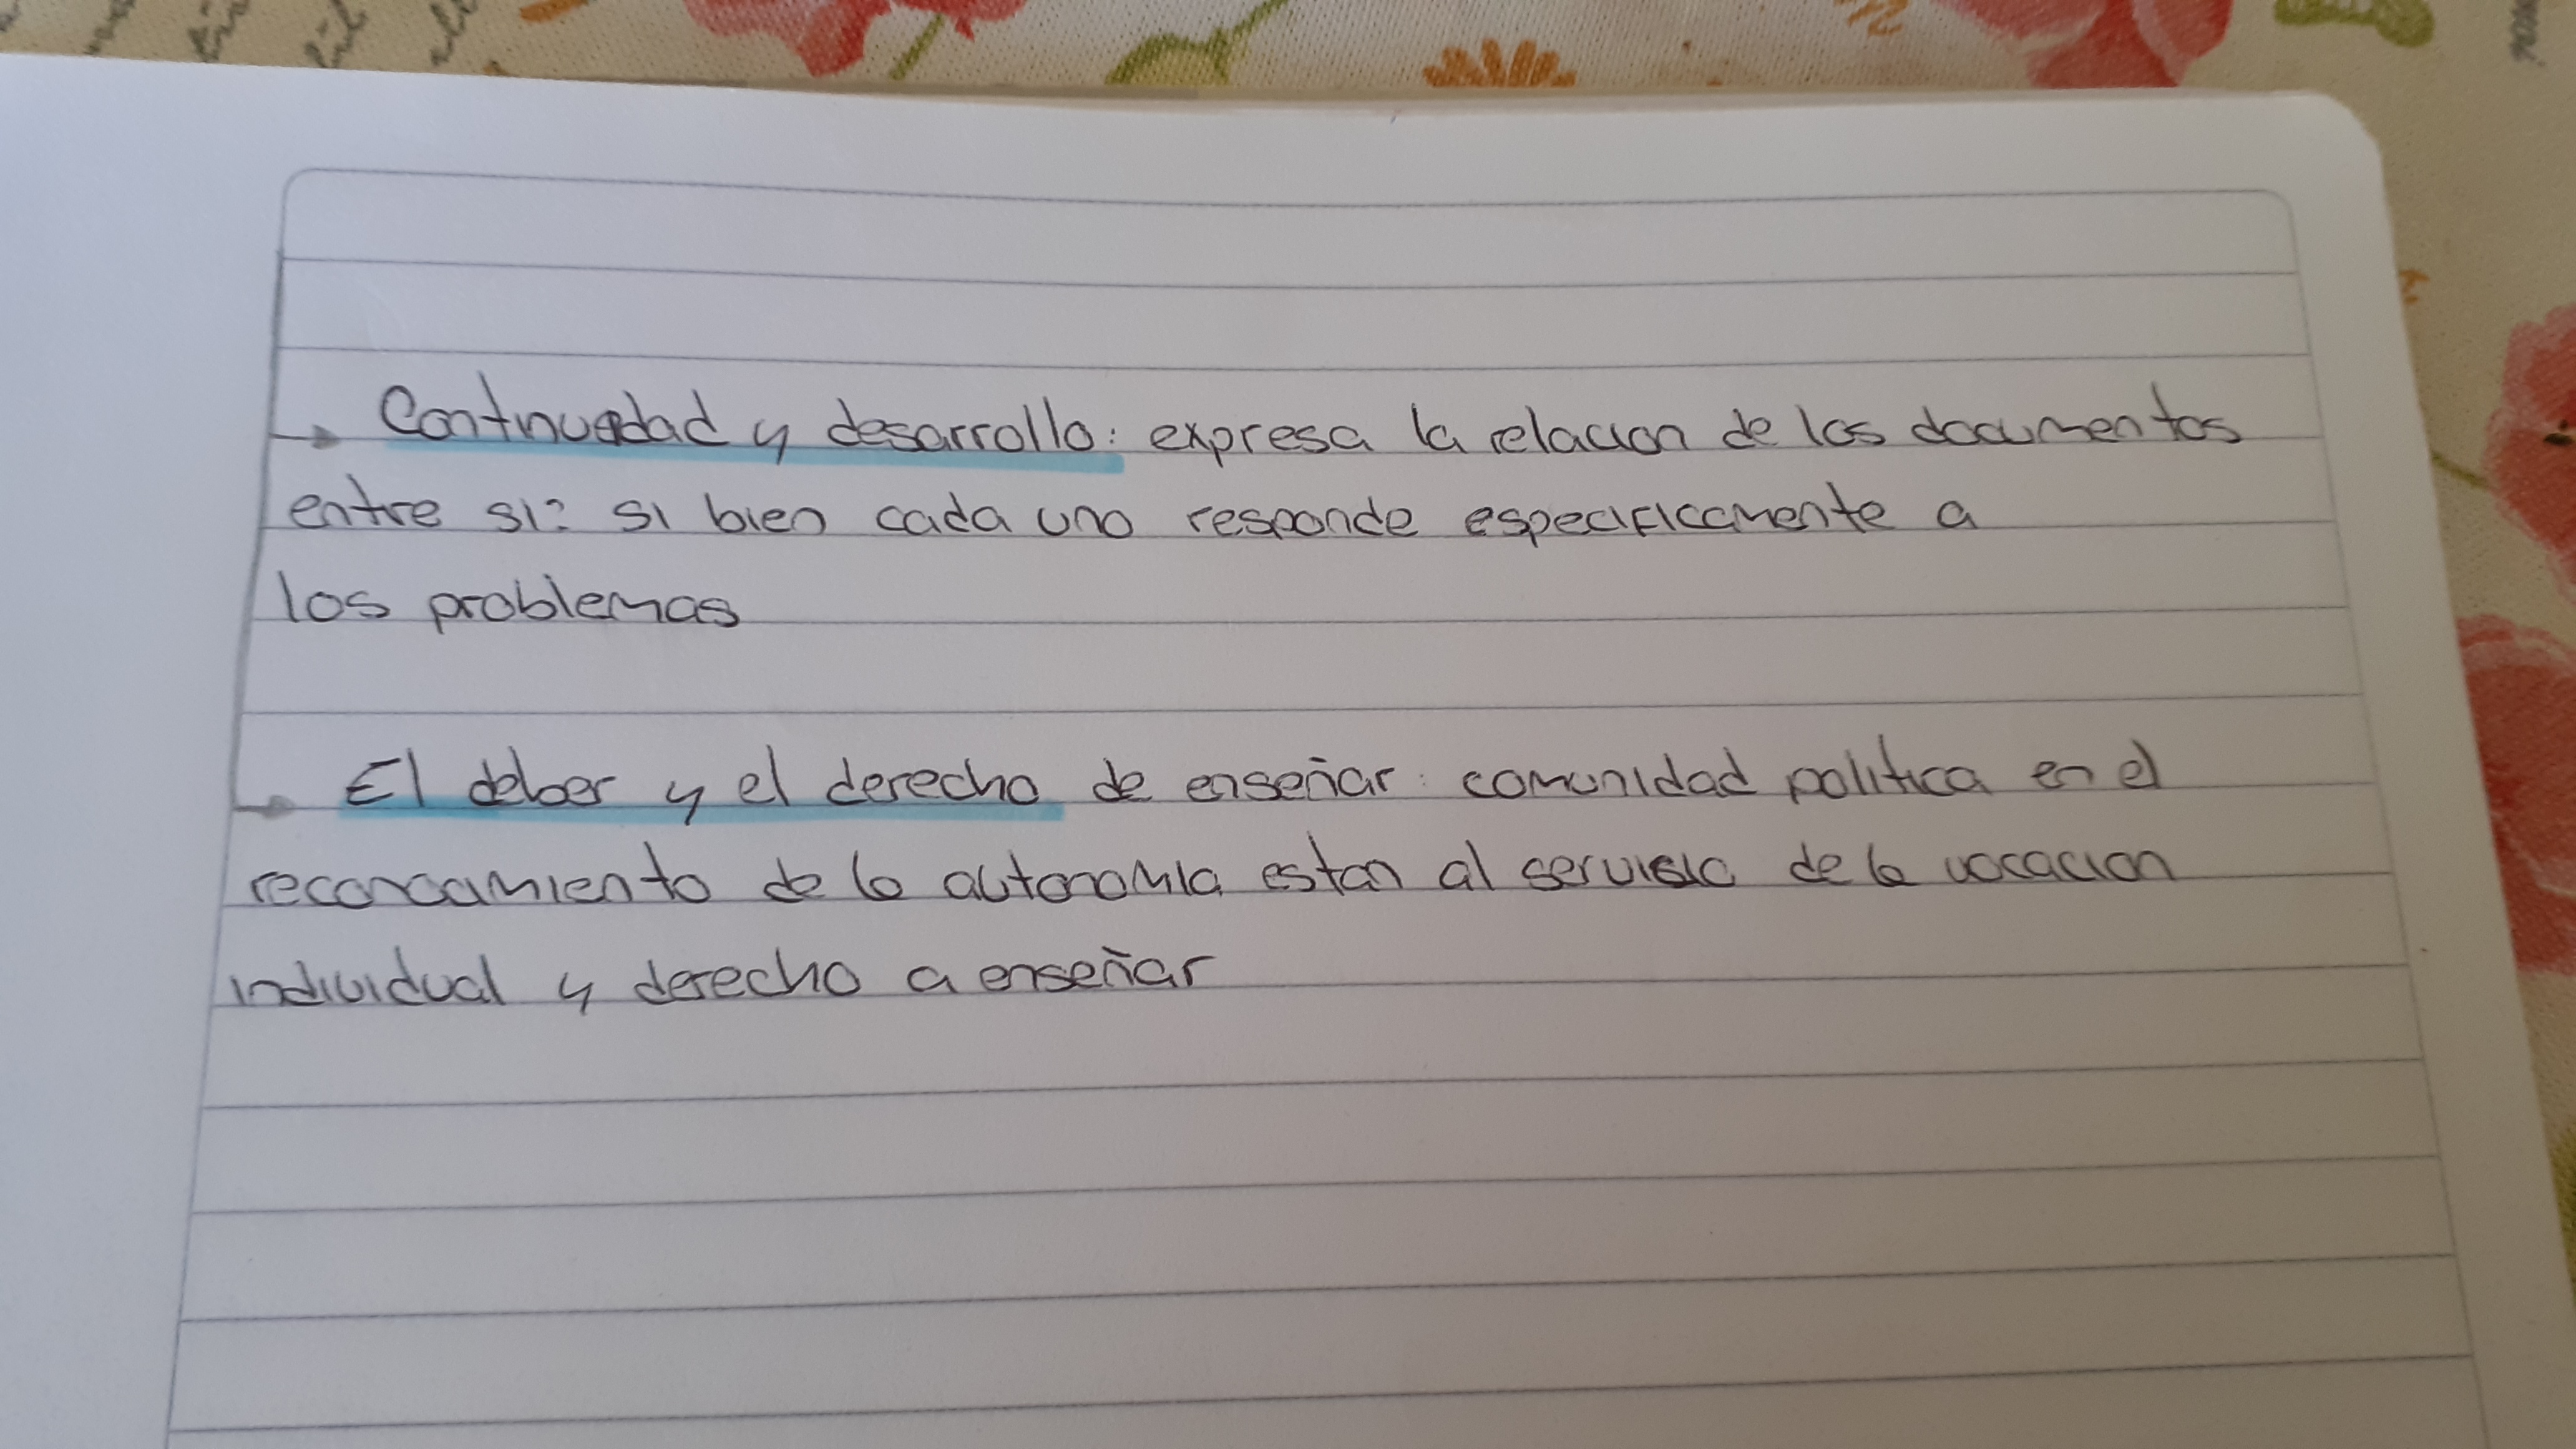 → Continuedad y desarrollo: expresa la relacion de los documentos
entre si: si bien cada uno responde especificamente a
los problemas
→ El deber y el derecho de enseñar: comunidad politica en el
reconocamiento de la autonomia estan al servisio de la vocacion
individual y derecho a enseñar